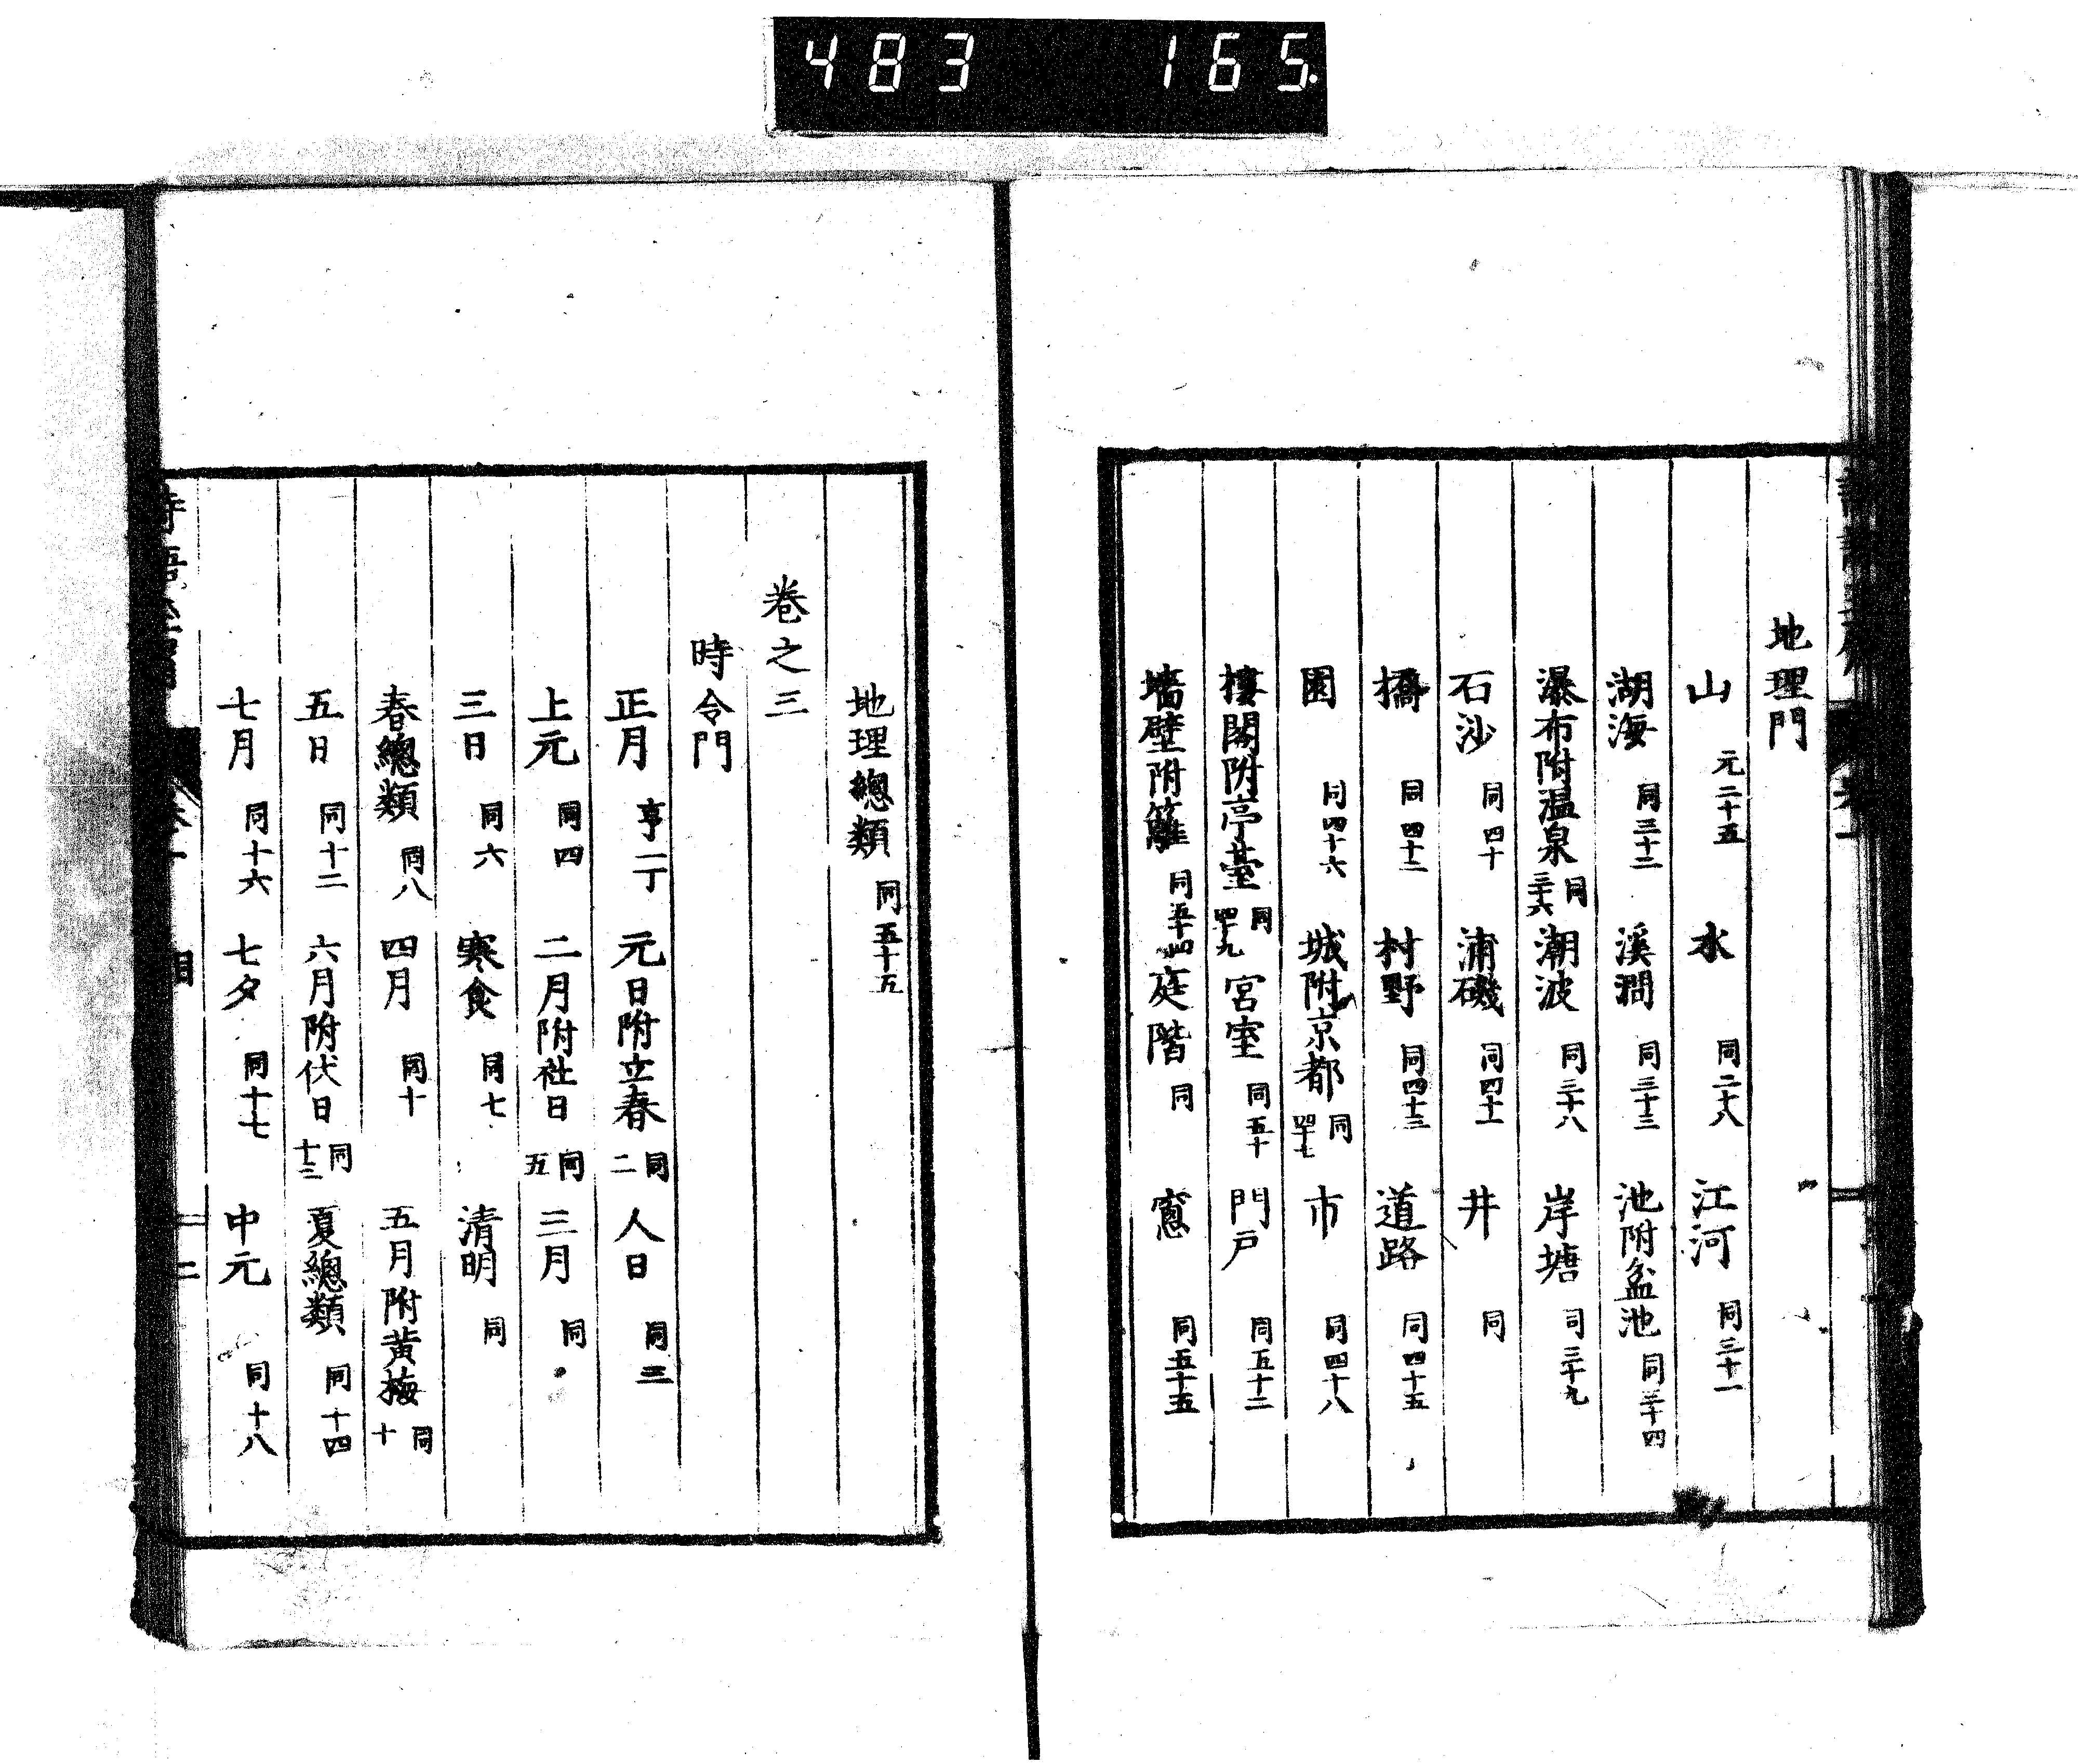 483 165.
地理門
山 元二十五 水 同二十八 江河 同三十一
湖海 同三十二 溪澗 同三十三 池附盆池 同三十四
瀑布附溫泉 同三十六 潮波 同三十八 岸塘 同三十九
石沙 同四十 浦磯 同四十一 井 同
橋 同四十二 村野 同四十三 道路 同四十五
園 同四十六 城附京都 同四十七 市 同四十八
樓閣附亭臺 同四十九 宮室 同五十 門戸 同五十二
墻壁附籬 同五十四 庭階 同 窻 同五十五
地理總類 同五十五
卷之三
時令門
正月 亨一丁 元日附立春 同二 人日 同三
上元 同四 二月附社日 同五 三月 同
三日 同六 寒食 同七 清明 同
春總類 同八 四月 同十 五月附黄梅 同十
五日 同十二 六月附伏日 同十三 夏總類 同十四
七月 同十六 七夕 同十七 中元 同十八